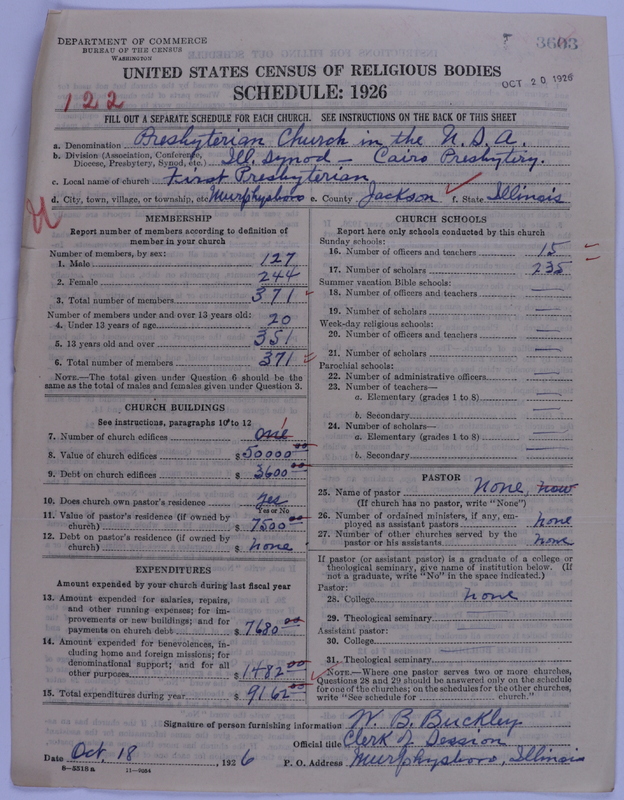 DEPARTMENT OF COMMERCE
BUREAU OF THE CENSUS
WASHINGTON
3603
UNITED STATES CENSUS OF RELIGIOUS BODIES
OCT 20 1926
SCHEDULE: 1926
122
FILL OUT A SEPARATE SCHEDULE FOR EACH CHURCH. SEE INSTRUCTIONS ON THE BACK OF THIS SHEET
a. Denomination Presbyterian Church in the U.S.A.
b. Division (Association, Conference, Diocese, Presbytery, Synod, etc.) Ill. Synod - Cairo Presbytery.
c. Local name of church First Presbyterian
d. City, town, village, or township, etc. Murphysboro e. County Jackson f. State Illinois
MEMBERSHIP
Report number of members according to definition of
member in your church
Number of members, by sex:
1. Male 127
2. Female 244
3. Total number of members 371
Number of members under and over 13 years old:
4. Under 13 years of age 20
5. 13 years old and over 351
6. Total number of members 371
NOTE.—The total given under Question 6 should be the
same as the total of males and females given under Question 3.
CHURCH BUILDINGS
See instructions, paragraphs 10 to 12
7. Number of church edifices one
8. Value of church edifices $50000.00
9. Debt on church edifices $3600.00
10. Does church own pastor's residence yes
Yes or No
11. Value of pastor's residence (if owned by
church) $7500.00
12. Debt on pastor's residence (if owned by
church) $ none
EXPENDITURES
Amount expended by your church during last fiscal year
13. Amount expended for salaries, repairs,
and other running expenses; for im-
provements or new buildings; and for
payments on church debt $7680.00
14. Amount expended for benevolences, in-
cluding home and foreign missions; for
denominational support; and for all
other purposes $1482.00
15. Total expenditures during year $9162.00
CHURCH SCHOOLS
Report here only schools conducted by this church
Sunday schools:
16. Number of officers and teachers 15
17. Number of scholars 235
Summer vacation Bible schools:
18. Number of officers and teachers
19. Number of scholars
Week-day religious schools:
20. Number of officers and teachers
21. Number of scholars
Parochial schools:
22. Number of administrative officers
23. Number of teachers—
a. Elementary (grades 1 to 8)
b. Secondary
24. Number of scholars—
a. Elementary (grades 1 to 8)
b. Secondary
PASTOR
25. Name of pastor none, now
(If church has no pastor, write "None")
26. Number of ordained ministers, if any, em-
ployed as assistant pastors none
27. Number of other churches served by the
pastor or his assistants none
If pastor (or assistant pastor) is a graduate of a college or
theological seminary, give name of institution below. (If
not a graduate, write "No" in the space indicated.)
Pastor:
28. College none
29. Theological seminary
Assistant pastor:
30. College
31. Theological seminary
NOTE.—Where one pastor serves two or more churches,
Questions 28 and 29 should be answered only on the schedule
for one of the churches; on the schedules for the other churches,
write "See schedule for church."
Signature of person furnishing information W. B. Buckley
Official title Clerk of Session
Date Oct. 18, 1926 P. O. Address Murphysboro, Illinois
8—5518a 11—9054